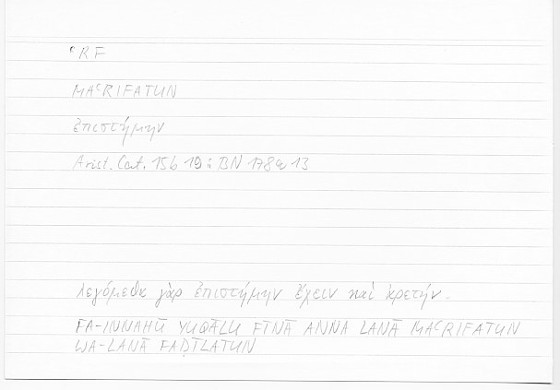 ʿRF
MAʿRIFATUN
ἐπιστήμην
Arist. Cat. 15b 19 : BN 178a 13
λεγόμεθα γὰρ ἐπιστήμην ἔχειν καὶ ἀρετήν.
FA-INNAHŪ YUQĀLU FĪNĀ ANNA LANĀ MAʿRIFATUN
WA-LANĀ FAḌĪLATUN